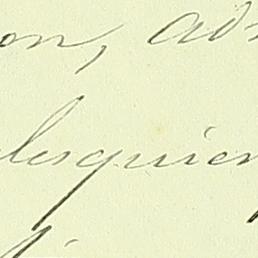 on, ad
lesquien